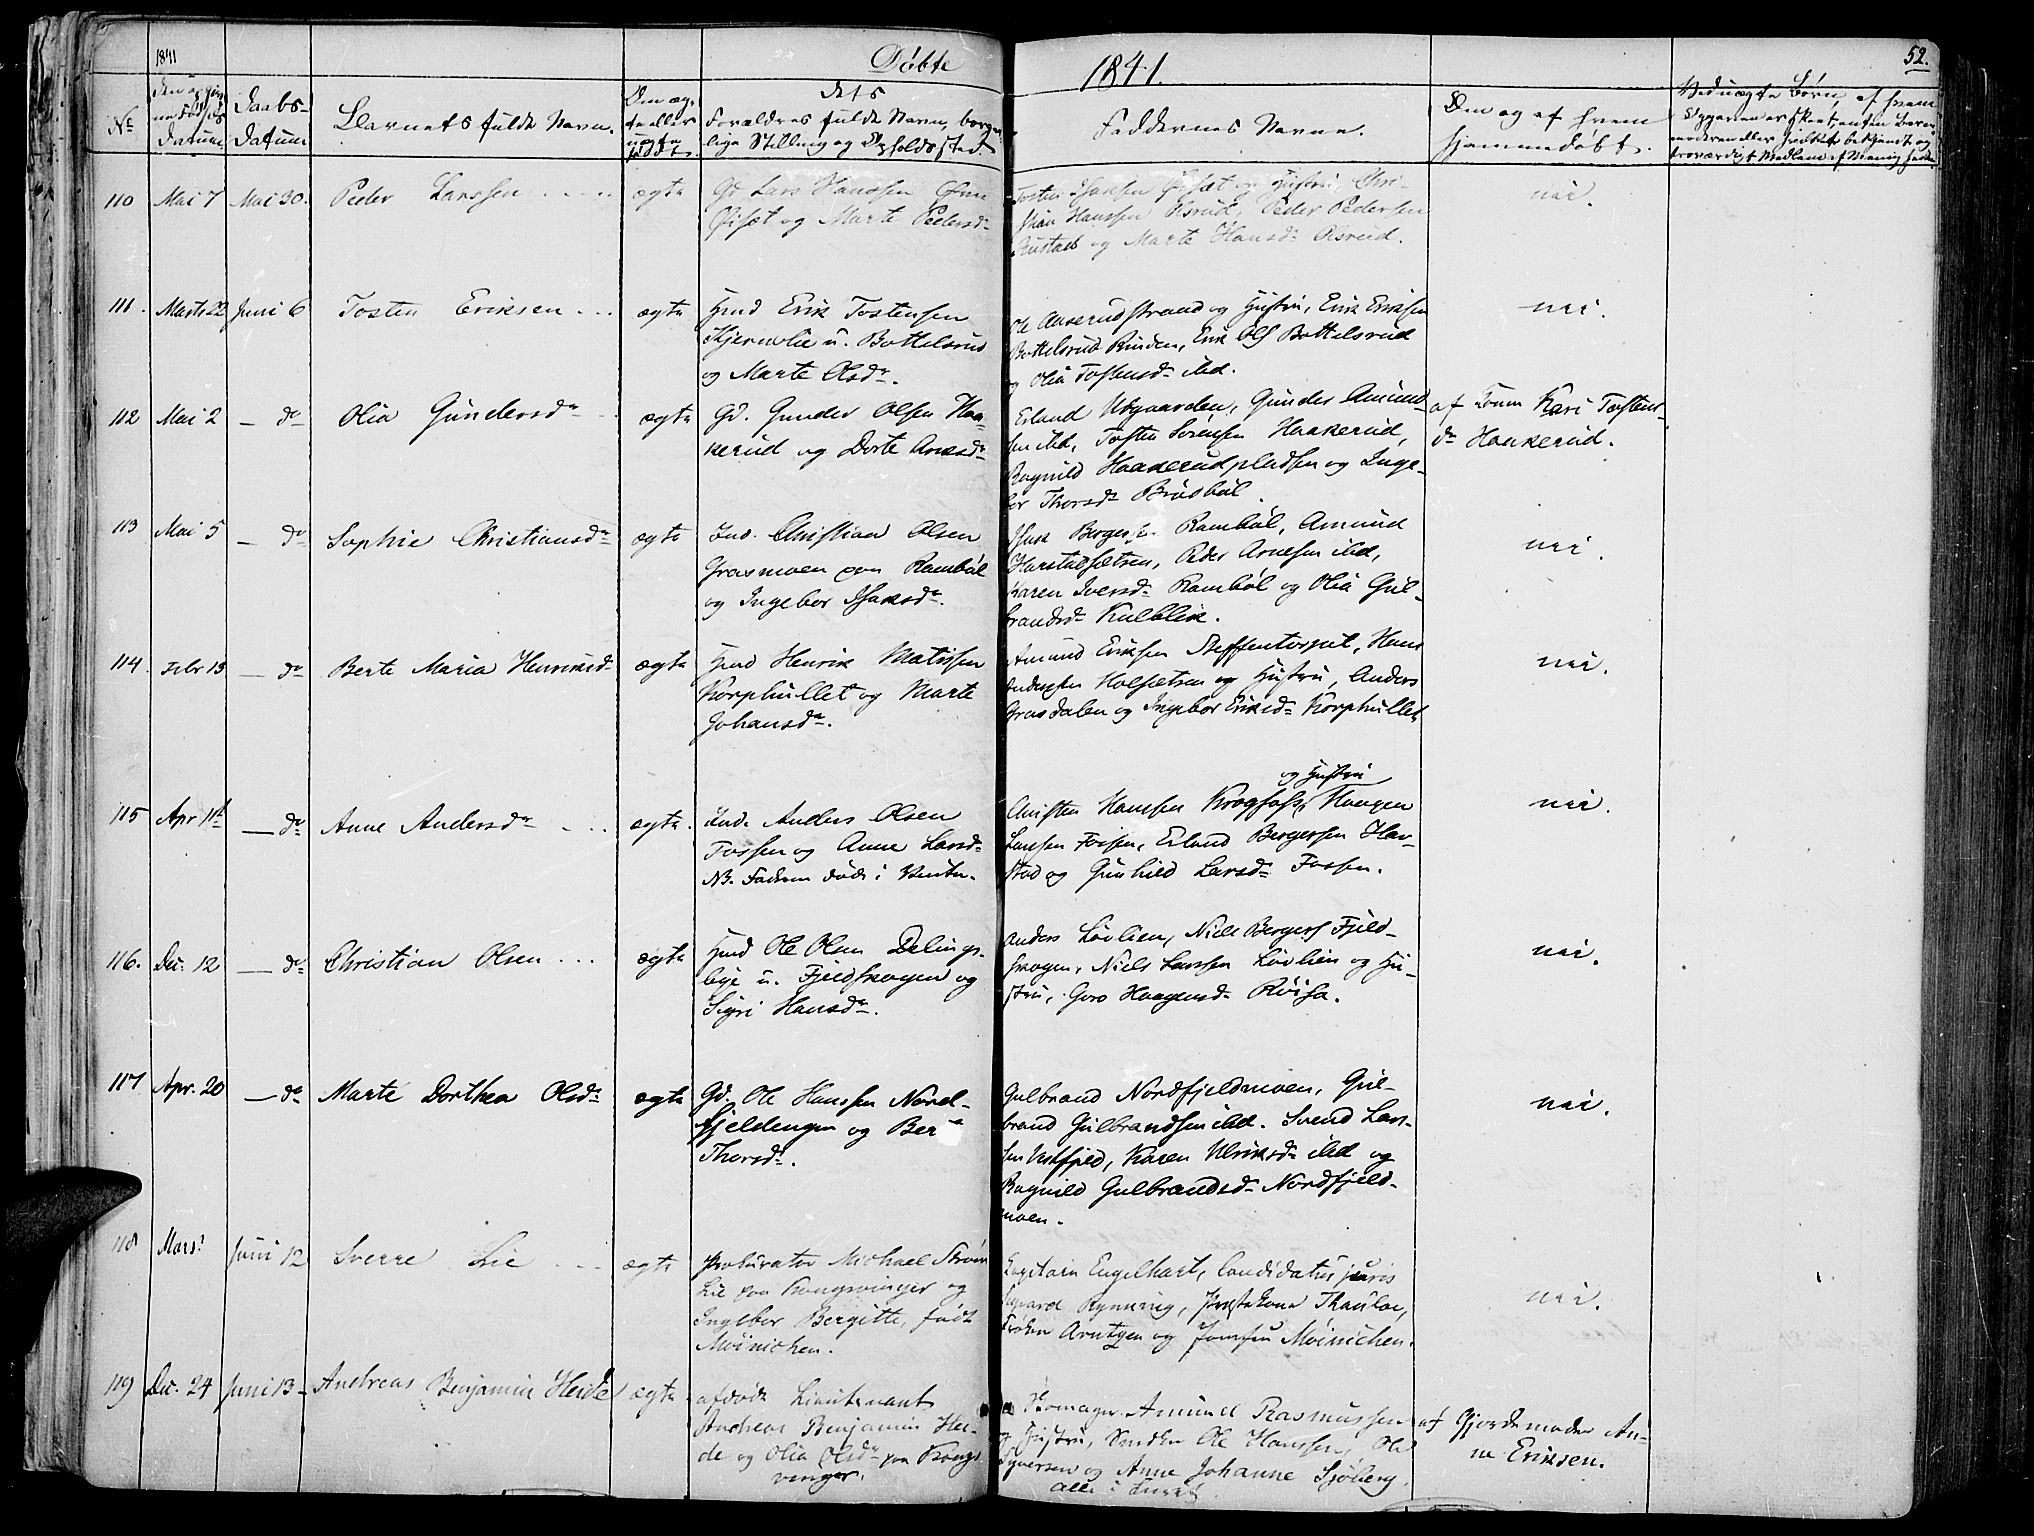 1841
Døbte
1841.
52.
No
Datum
Daabs-
Datum
Barnets fulde Navn.
Den æg-
te eller
uægte
født.
dets
Forældres fulde Navn, borger-
lige Stilling og Opholdssted.
Faddernes Navne.
Om og af hvem
hjemmedøbt.
Ved uægte Børn, af hvem
110 Mai 7 Mai 30. Peder Larssen ægte
Gd Lars Hanssen
og Marte Pedersdr
Tosten og Hustru, Chri-
Hanssen Olsrud, Peder Pedersen
Rustad og Marte Hansdr Olsrud.
nei.
111. Marts 22 Juni 6 Tosten Eriksen ægte
Hmd Erik Tostensen
Kjernelie u. Bottelsrud
og Marte Olsdr.
Ole Aaserudstrand og Hustru, Erik Eriksen
Bottelsrud Rinden, Erik Ols Bottelsrud
og Olia Tostensdr ibd.
nei.
112 Mai 2 — do Olia Gundersdr ægte
Gd. Gunder Olsen Haa-
kerud og Dorte Aresdr
Erland Utgaarden, Gunder Amund-
sen ibd, Tosten Sørensen Haakerud,
Ragnild Haakerudpladsen og Inge-
bor Thorsdr Brødbøl.
af Kari Tostens-
dr Haakerud.
113 Mai 5 — do Sophie Christiansdr ægte
Ind. Christian Olsen
Grasmoen paa Rambøl
og Ingebor Isaksdr.
Isak Bergersen Rambøl, Amund
Harstadsætren, Peder Arnesen ibd,
Karen Iversdr Rambøl og Olia Gul-
brandsdr Kulblik.
nei.
114. Febr 13 — do Berte Maria Henriksdr ægte
Hmd Henrik Matissen
Korphullet og Marte
Johansdr.
Amund Eriksen Steffentorpet, Hans
Andersen Holsætren og Hustru, Anders
Grasdalen og Ingebor Eriksdr Korphullet
nei.
115 Apr 11te — do Anne Andersdr ægte.
Ind. Anders Olsen
Fossen og Anne Larsdr
NB. Faderen døde i Vinter.
og Hustru
Christen Hanssen Krogfoss, Haagen
Larssen Fossen, Erland Bergersen Har-
stad og Gunhild Larsdr Fossen.
nei.
116. Dec. 12 — do Christian Olsen ægte
Hmd Ole Olsen Delings-
leje u. Fjeldskogen og
Sigri Hansdr.
Anders Løvlien, Niels Bergers Fjeld-
skogen, Niels Larssen Løvlien og Hu-
stru, Goro Haagensdr Røisa.
nei.
117 Apr. 20 — do Marte Dorthea Olsdr ægte
Gd. Ole Hanssen Nord-
fjeldengen og Ber
Thorsdr.
Gulbrand Nordfjeldmoen, Gul-
brand Gulbrandsen ibd. Svend Lars-
sen Vestfjeld, Karen Ulriksdr ibd og
Ragnild Gulbrandsdr Nordfjeld-
moen.
nei.
118 Mars Juni 12 Sverre Lie ægte
Prokurator Michael Strøm
Lie paa Kongsvinger og
Ingebor Bergitte, født
Møinichen.
Capitain Engelhart, Candidatus juris
Rynning, Thaulow,
Frøken Arntzen og Jomfru Møinichen.
nei.
119 Dec. 24 Juni 13 Andreas Benjamin Heide ægte
afdøde Lieutenant
Andreas Benjamin Hei-
de og Olia Olsdr paa Kongs-
vinger.
Skomager. Amund Rasmussen
og Hustru, Smeden Ole Hanssen, Ole
Syversen og Anne Johanne Sjøberg,
alle i
af Gjordemoder An-
ne Eriksen.